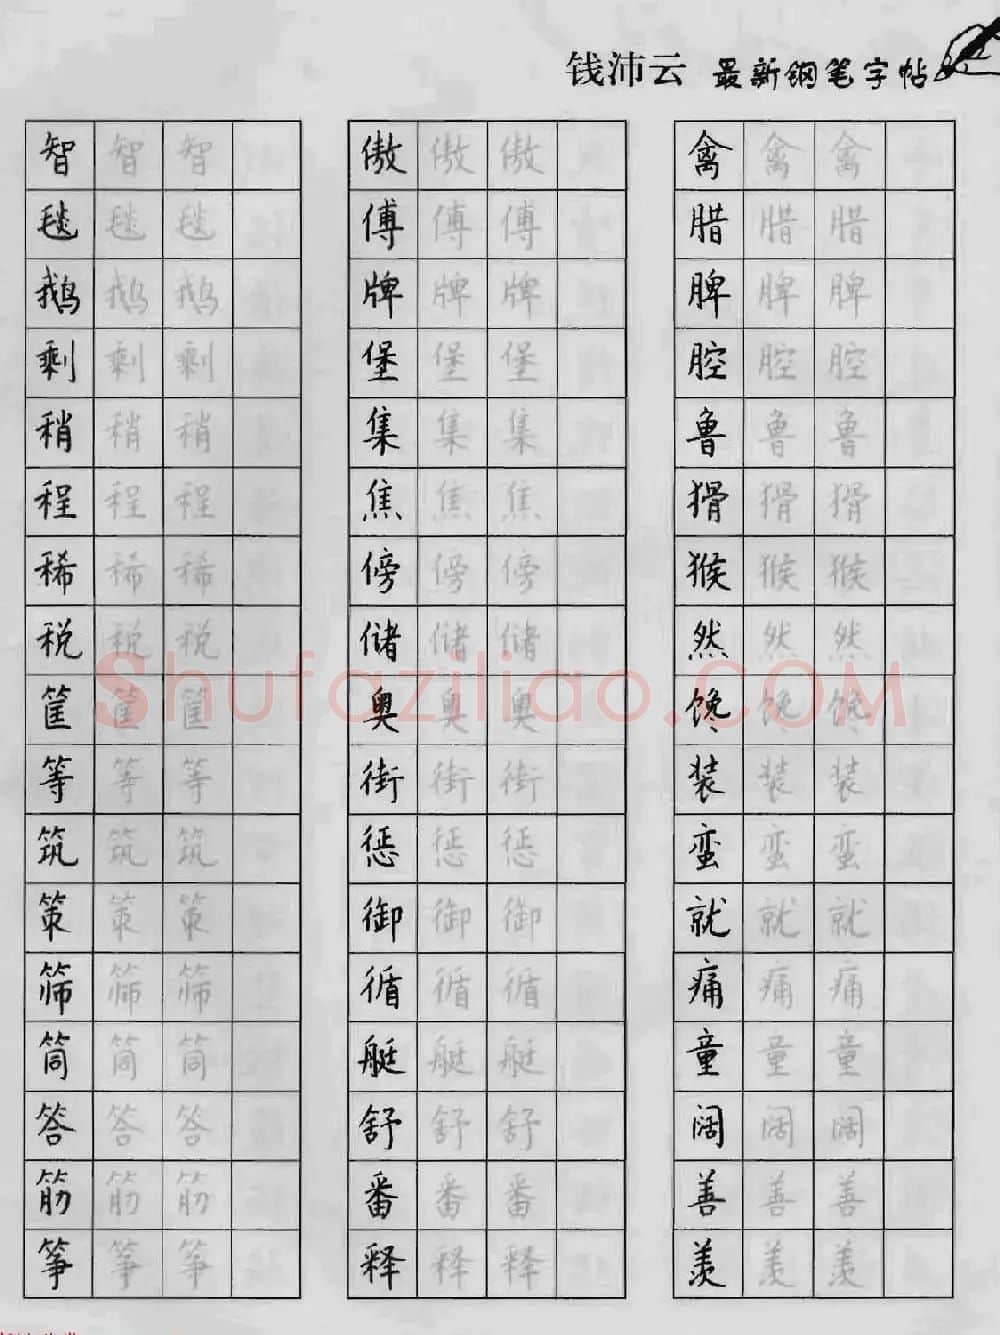 钱沛云 最新钢笔字帖
智 智 智 傲 傲 傲 禽 禽 禽
毯 毯 毯 傅 傅 傅 腊 腊 腊
鹅 鹅 鹅 牌 牌 牌 脾 脾 脾
剩 剩 剩 堡 堡 堡 腔 腔 腔
稍 稍 稍 集 集 集 鲁 鲁 鲁
程 程 程 焦 焦 焦 猾 猾 猾
稀 稀 稀 傍 傍 傍 猴 猴 猴
税 税 税 储 储 储 然 然 然
Shufaziliao.COM
筐 筐 筐 奥 奥 奥 馋 馋 馋
等 等 等 街 街 街 装 装 装
筑 筑 筑 惩 惩 惩 蛮 蛮 蛮
策 策 策 御 御 御 就 就 就
筛 筛 筛 循 循 循 痛 痛 痛
筒 筒 筒 艇 艇 艇 童 童 童
答 答 答 舒 舒 舒 阔 阔 阔
筋 筋 筋 番 番 番 善 善 善
筝 筝 筝 释 释 释 羡 羡 羡